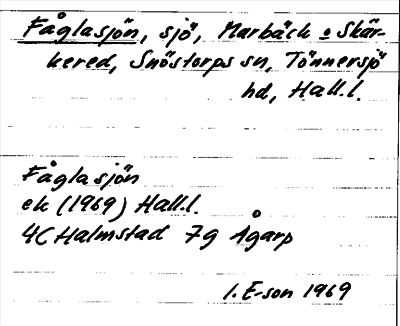 Fåglasjön, sjö, Marbäck o Skär-
kered, Snöstorps sn, Tönnersjö
hd, Hall.l.
Fåglasjön
ek (1969) Hall.l.
4C Halmstad 7g Ågarp
I. E-son 1969